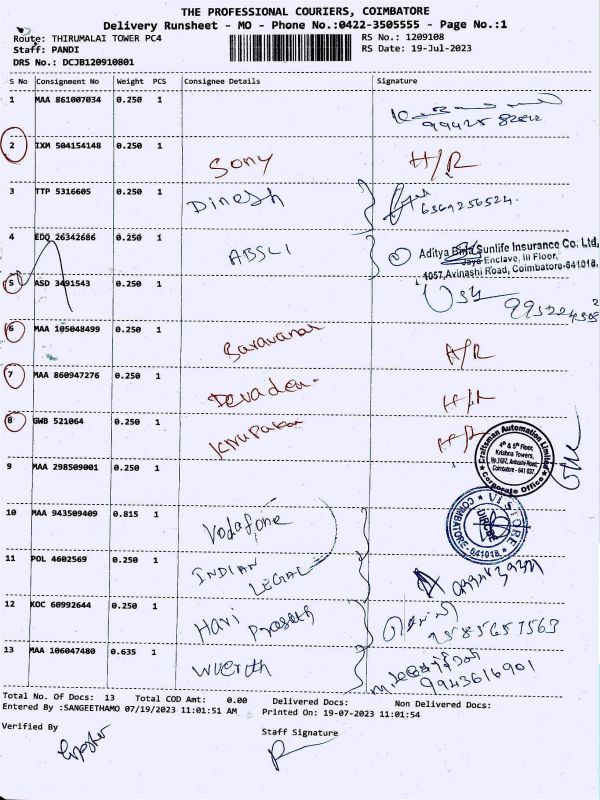 THE PROFESSIONAL COURIERS, COIMBATORE
Delivery Runsheet - MO - Phone No.:0422-3505555 - Page No.:1
Route: THIRUMALAI TOWER PC4 RS No.: 1209108
Staff: PANDI RS Date: 19-Jul-2023
DRS No.: DCJB120910801
S No Consignment No Weight PCS Consignee Details Signature
1 MAA 861007034 0.250 1
2 IXM 504154148 0.250 1 Sony H/R
3 TTP 5316605 0.250 1 Dinesh 6369256524
4 EDQ 26342686 0.250 1 ABSLI
Aditya Birla Sunlife Insurance Co. Ltd,
Jaya Enclave, III Floor,
1057,Avinashi Road, Coimbatore-641018.
5 ASD 3491543 0.250 1
6 MAA 105048499 0.250 1 Saravanan H/R
7 MAA 860947276 0.250 1 H/R
8 GWB 521064 0.250 1 H/R
Craftsman Automation Limited
4th & 5th Floor,
Krishna Towers,
Avinashi Road,
Coimbatore - 641 037
Corporate Office
9 MAA 298509001 0.250 1
10 MAA 943509409 0.815 1 Vodafone
COIMBATORE-641018
11 POL 4602569 0.250 1 INDIAN
LEGAL
12 KOC 60992644 0.250 1 Hari Prasath
9585657563
13 MAA 106047480 0.635 1 Wuerth
9943616901
Total No. Of Docs: 13 Total COD Amt: 0.00 Delivered Docs: Non Delivered Docs:
Entered By :SANGEETHAMO 07/19/2023 11:01:51 AM Printed On: 19-07-2023 11:01:54
Verified By Staff Signature